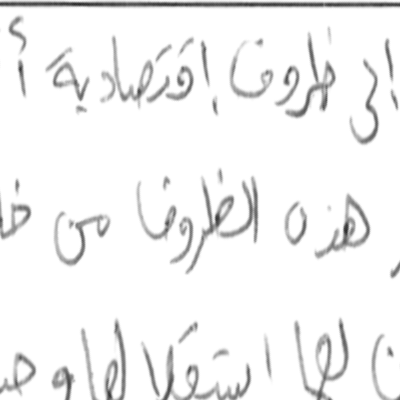 إلى ظروف إقتصادية أ
هذه الظروف من خا
لها استقلالها وحد